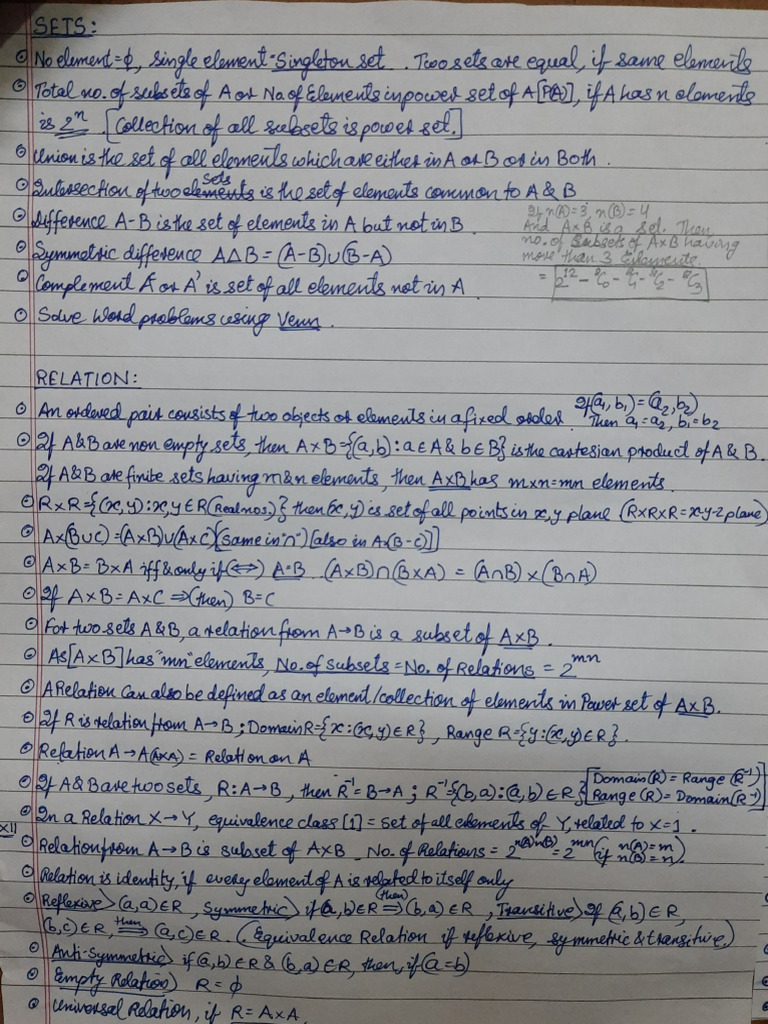 SETS:
No element = ϕ, single element = Singleton set. Two sets are equal, if same elements
Total no. of subsets of A or No. of Elements in power set of A [P(A)], if A has n elements
is 2ⁿ [Collection of all subsets is power set.]
Union is the set of all elements which are either in A or B or in Both.
Intersection of two sets is the set of elements common to A & B
Difference A-B is the set of elements in A but not in B.
If n(A)=3, n(B)=4
And A×B is a set. Then
no. of Subsets of A×B having
more than 3 Elements.
= 2¹² - ¹²C₀ - ¹²C₁ - ¹²C₂ - ¹²C₃
Symmetric difference A△B = (A-B)∪(B-A)
Complement Ā or A' is set of all elements not in A.
Solve Word problems using Venn.
RELATION:
An ordered pair consists of two objects or elements in a fixed order. If (a₁, b₁) = (a₂, b₂)
Then a₁=a₂, b₁=b₂
If A & B are non empty sets, then A×B={(a,b) : a∈A & b∈B} is the cartesian product of A & B.
If A & B are finite sets having m & n elements, then A×B has m×n=mn elements.
R×R={(x,y):x,y∈R(Real nos.)} then (x,y) is set of all points in x,y plane (R×R×R=x-y-z plane)
A×(B∪C)=(A×B)∪(A×C) [same in "∩"] [also in A×(B-C)]
A×B = B×A iff & only if (⟺) A=B (A×B)∩(B×A) = (A∩B)×(B∩A)
If A×B = A×C ⇒(then) B=C
For two sets A & B, a relation from A→B is a subset of A×B.
As [A×B] has "mn" elements, No. of Subsets = No. of Relations = 2ᵐⁿ
A Relation can also be defined as an element/collection of elements in Power set of A×B.
If R is relation from A→B ; Domain R={x:(x,y)∈R}, Range R={y:(x,y)∈R}.
Relation A→A(A×A) = Relation on A
If A & B are two sets, R:A→B, then R⁻¹=B→A ; R⁻¹={(b,a):(a,b)∈R} [Domain(R) = Range(R⁻¹)
Range(R) = Domain(R⁻¹)]
In a Relation X→Y, equivalence class [1] = set of all elements of Y, related to X=1.
XII
Relation from A→B is subset of A×B. No. of Relations = 2ⁿ⁽ᴬ⁾ⁿ⁽ᴮ⁾ = 2ᵐⁿ (if n(A)=m
n(B)=n)
Relation is identity, if every element of A is related to itself only
Reflexive> (a,a)∈R, Symmetric> if (a,b)∈R ⇒(then) (b,a)∈R, Transitive> If (a,b)∈R,
(b,c)∈R, ⇒(then) (a,c)∈R. (Equivalence Relation if reflexive, symmetric & transitive.)
Anti-Symmetric> if (a,b)∈R & (b,a)∈R, then, if (a=b)
Empty Relation> R = ϕ
Universal Relation, if R = A×A